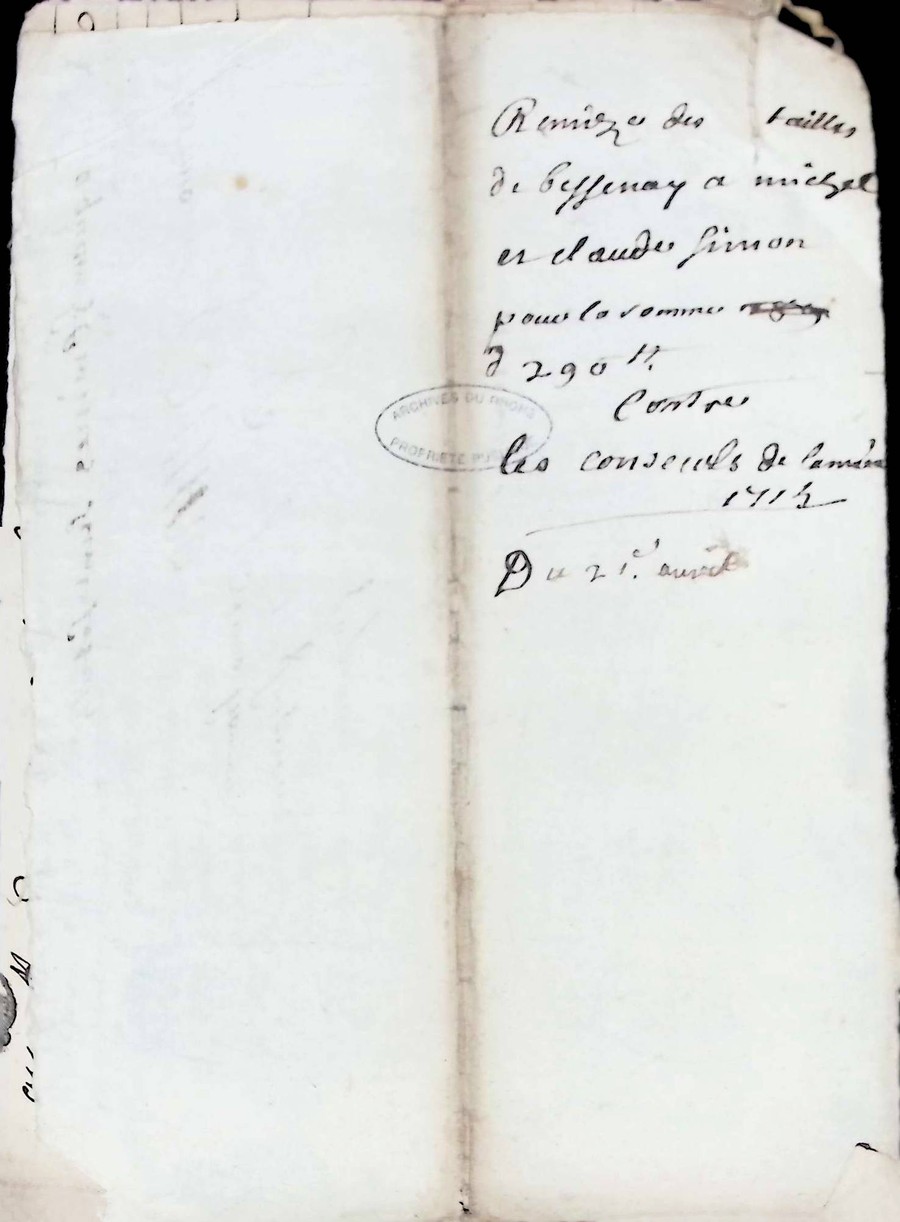 Remize des tailles
de bessenay a michel
et claude Simon
pour la somme
d 290 tt.
Contre
les consculs de lannée
1715
Du 21e. avril
ARCHIVES DU RHONE
PROPRIETE PUBLIQUE